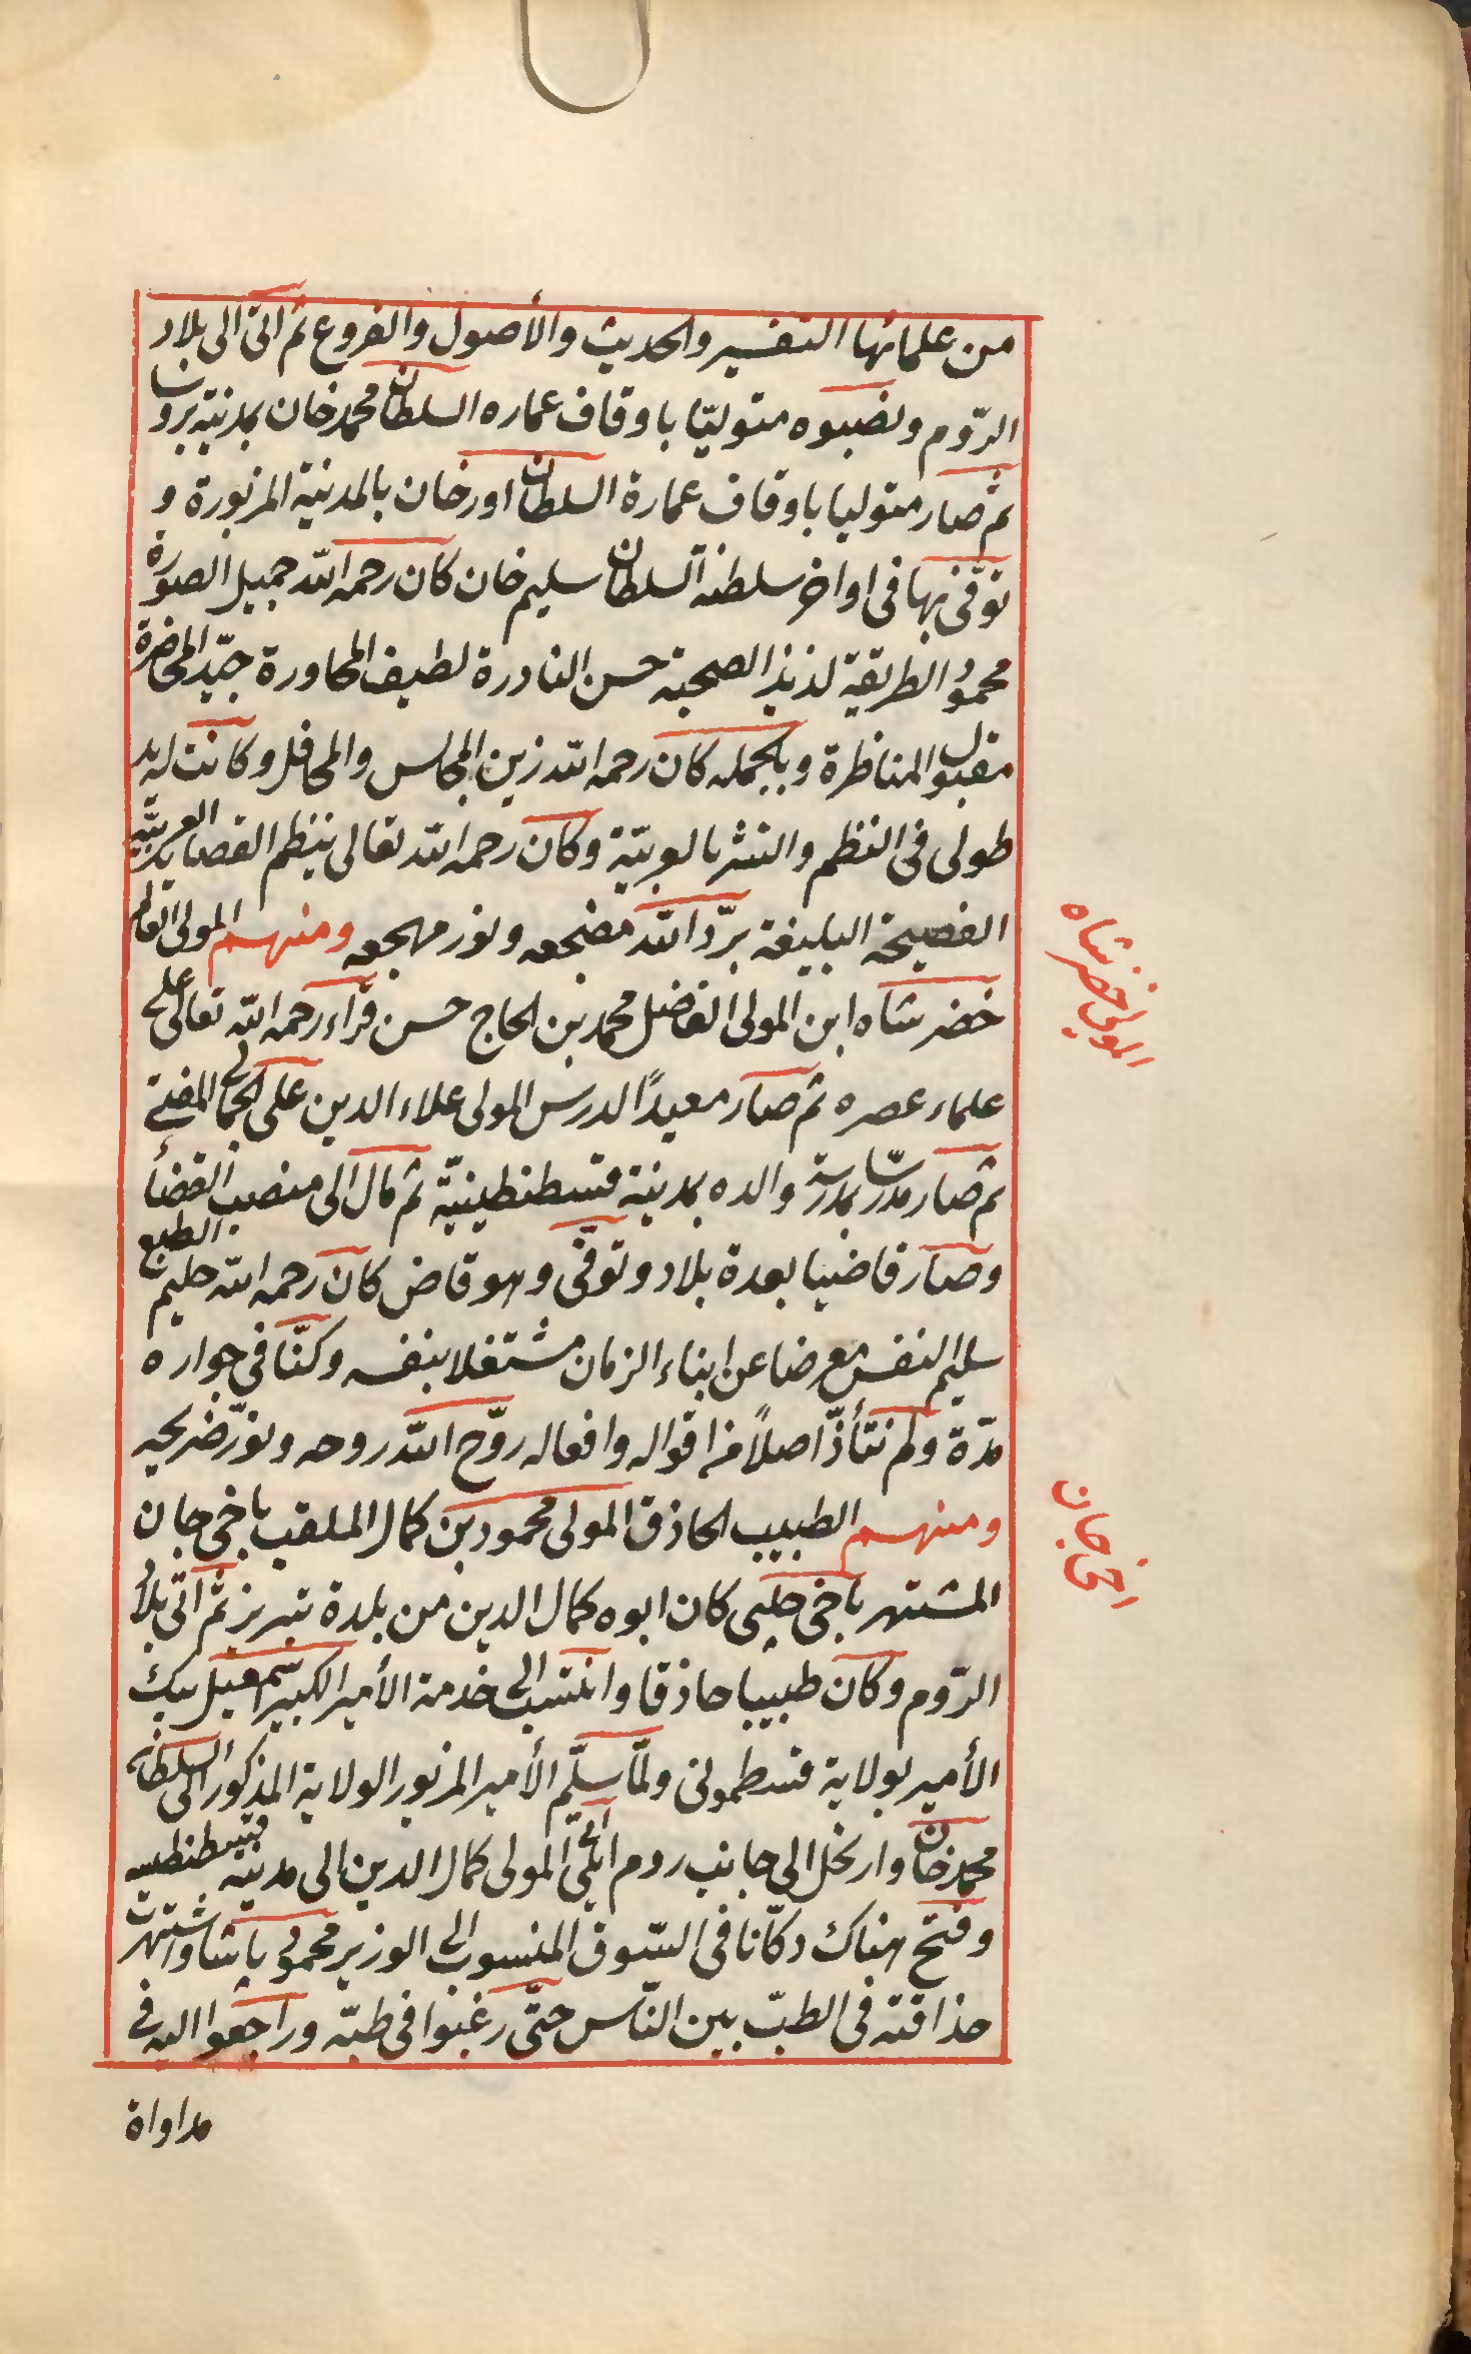 من علمائها التفسير والحديث والأصول والفروع ثم اتى الى بلاد
الرّوم ونصبوه متوليّا باوقاف عماره السلطان محمد خان بمدينة بروسا
ثم صار متوليا باوقاف عمارة السلطان اورخان بالمدينة المزبورة و
توفّى بها فى اواخر سلطنة السلطان سليم خان كان رحمه الله جميل الصورة
محمود الطريقة لذيذ الصحبة حسن النادرة لطيف المحاورة جيّد المحاضرة
مقبول المناظرة وبالجمله كان رحمه الله زين المجالس والمحافل وكانت له يد
طولى فى النظم والنثر بالعربيّة وكان رحمه الله تعالى ينظم القصايد العربيّة
الفصيحة البليغة برّد الله مضجعه ونور مهجعه ومنهم المولى العالم
خضر شاه ابن المولى الفاضل محمد بن الحاج حسن قراء رحمه الله تعالى على
علماء عصره ثم صار معيدًا لدرس المولى علاء الدين على الجمالى المفتى
ثم صار مدرّسا بمدرسة والده بمدينة قسطنطينيّة ثم مال الى منصب القضأ
وصار قاضيا بعدة بلاد وتوفّى وهو قاض كان رحمه الله حليم الطبع
سليم النفس معرضا عن ابناء الزمان مشتغلا بنفسه وكنّا فى جواره
مدّة ولم نتأذّ اصلاً من اقواله وافعاله روّح الله روحه ونوّر ضريحه
ومنهم الطبيب الحاذق المولى محمود بن كمال الملقب باخى جان
المشتهر باخى چلبى كان ابوه كمال الدين من بلدة تبريز ثم اتى بلاد
الرّوم وكان طبيبا حاذقا وانتسب الى خدمة الأمير الكبير اسمعيل بيك
الأمير بولاية قسطمونى ولمّا سلّم الأمير المزبور الولاية المذكور الى السلطان
محمد خان وارتحل الى جانب روم ايلى اتى المولى كمال الدين الى مدينة قسطنطينيه
وفتح هناك دكّانا فى السّوق المنسوب الى الوزير محمود پاشا واشتهرت
حذاقته فى الطبّ بين النّاس حتّى رغبوا فى طبّه وراجعوا اليه فى
مداواة
المولى خضر شاه
اخى جان